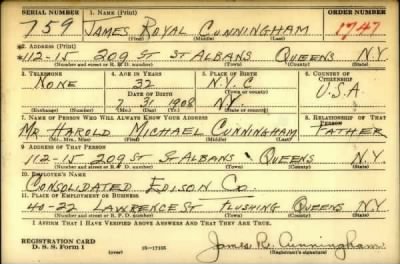 SERIAL NUMBER 1. NAME (Print) ORDER NUMBER
759 JAMES ROYAL CUNNINGHAM 1747
(First) (Middle) (Last)
2. ADDRESS (Print)
112-15 209 ST ST ALBANS QUEENS N.Y.
(Number and street or R. F. D. number) (Town) (County) (State)
3. TELEPHONE 4. AGE IN YEARS 5. PLACE OF BIRTH 6. COUNTRY OF CITIZENSHIP
NONE 32 N.Y.C
DATE OF BIRTH (Town or county)
7 31 1908 N.Y. U.S.A.
(Exchange) (Number) (Mo.) (Day) (Yr.) (State or country)
7. NAME OF PERSON WHO WILL ALWAYS KNOW YOUR ADDRESS 8. RELATIONSHIP OF THAT PERSON
MR. HAROLD MICHAEL CUNNINGHAM FATHER
(Mr., Mrs., Miss) (First) (Middle) (Last)
9. ADDRESS OF THAT PERSON
112-15 209 ST ST ALBANS QUEENS N.Y.
(Number and street or R. F. D. number) (Town) (County) (State)
10. EMPLOYER'S NAME
CONSOLIDATED EDISON CO.
11. PLACE OF EMPLOYMENT OR BUSINESS
40-22 LAWRENCE ST FLUSHING QUEENS N.Y
(Number and street or R. F. D. number) (Town) (County) (State)
I AFFIRM THAT I HAVE VERIFIED ABOVE ANSWERS AND THAT THEY ARE TRUE.
REGISTRATION CARD
D. S. S. Form 1 (over) 16-17105 James R. Cunningham
(Registrant's signature)